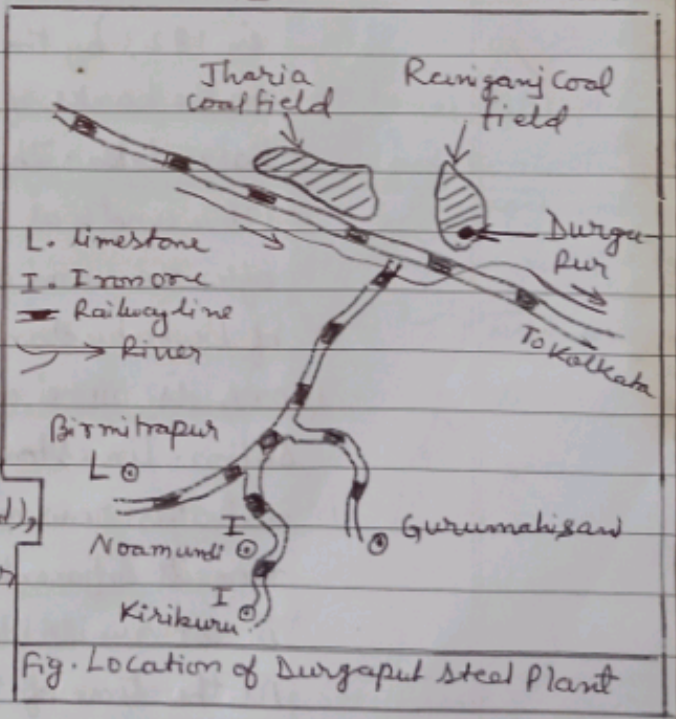 Jharia
coalfield
Raniganj Coal
field
Durga-
Pur
L. limestone
I. Iron ore
Railway line
River
To Kolkata
Birmitrapur
L
I
Noamundi
Gurumahisani
I
Kiriburu
Fig. Location of Durgaput steel Plant